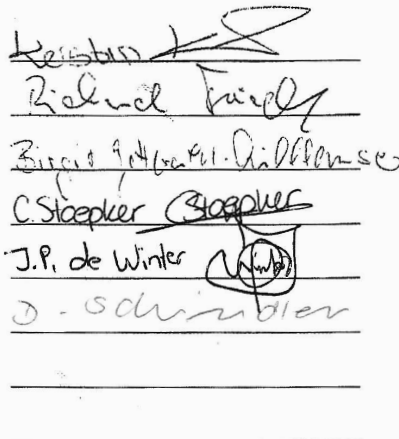 Kerstin
Richard Friedl
Birgit
C. Stoepker CStoepker
J.P. de Winter Winter
D. Schindler